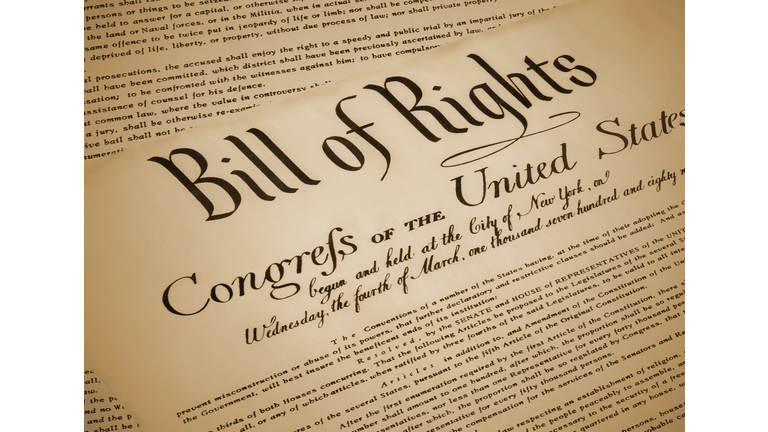 arrants shall
persons or things to be seized.
be held to answer for a capital, or otherwise
the land or Naval forces, or in the Militia, when in actual
same offence to be twice put in jeopardy of life or limb; nor shall be
deprived of life, liberty, or property, without due process of law; nor shall private
prosecutions, the accused shall enjoy the right to a speedy and public trial by an impartial jury of the
all have been committed, which district shall have been previously ascertained by law,
sation; to be confronted with the witnesses against him; to have compulsory
assistance of counsel for his defence.
common law, where the value in controversy
a jury, shall be otherwise
ive bail shall not be
Bill of Rights
Congreſs OF THE United States
begun and held at the City of, New York, on
Wednesday, the fourth of March, one thousand seven hundred and eighty
The Conventions of a number of the States having, at the time of their adopting the
prevent misconstruction or abuse of its powers, that further declaratory and restrictive clauses should be added: And
the Government, will best insure the beneficent ends of its institution:
Resolved, by the SENATE and HOUSE of REPRESENTATIVES of the
thirds of both Houses concurring. That the following Articles be proposed to the Legislatures of the several
all, or any of which articles, when ratified by three fourths of the said Legislatures, to be valid to all
Articles in addition to, and Amendment of the Constitution of the
of the several States, pursuant to the fifth Article of the Original Constitution.
After the first enumeration required by the first Article of the Constitution, there
number shall amount to one hundred, after which, the proportion shall be so
nor less than one Representative for every forty thousand
after which, the proportion shall be so regulated by Congress, that
representative for every fifty thousand persons.
the compensation for the services of the Senators and
law respecting an establishment of religion,
the people peaceably to assemble, and
necessary to the security of a free
quartered in any house,
persons,